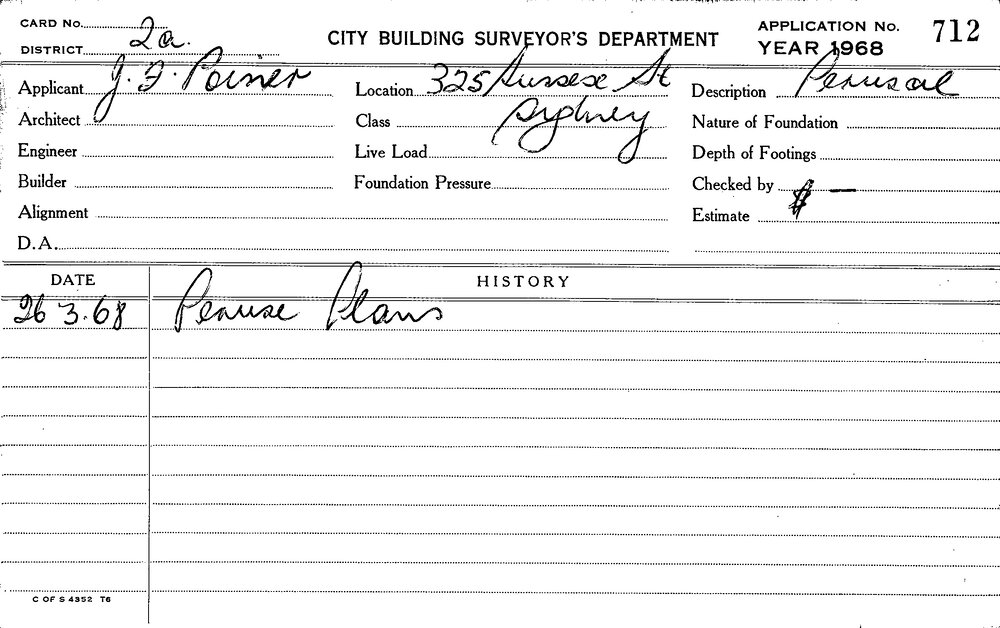 CARD No.
DISTRICT 2a.
CITY BUILDING SURVEYOR'S DEPARTMENT
APPLICATION No. 712
YEAR 1968
Applicant J. F. Poiner
Location 325 Sussex St
Sydney
Description Perusal
Architect
Class
Nature of Foundation
Engineer
Live Load
Depth of Footings
Builder
Foundation Pressure
Checked by
Alignment
Estimate $ —
D.A.
DATE HISTORY
26 3.68 Peruse Plans
C OF S 4352 T6